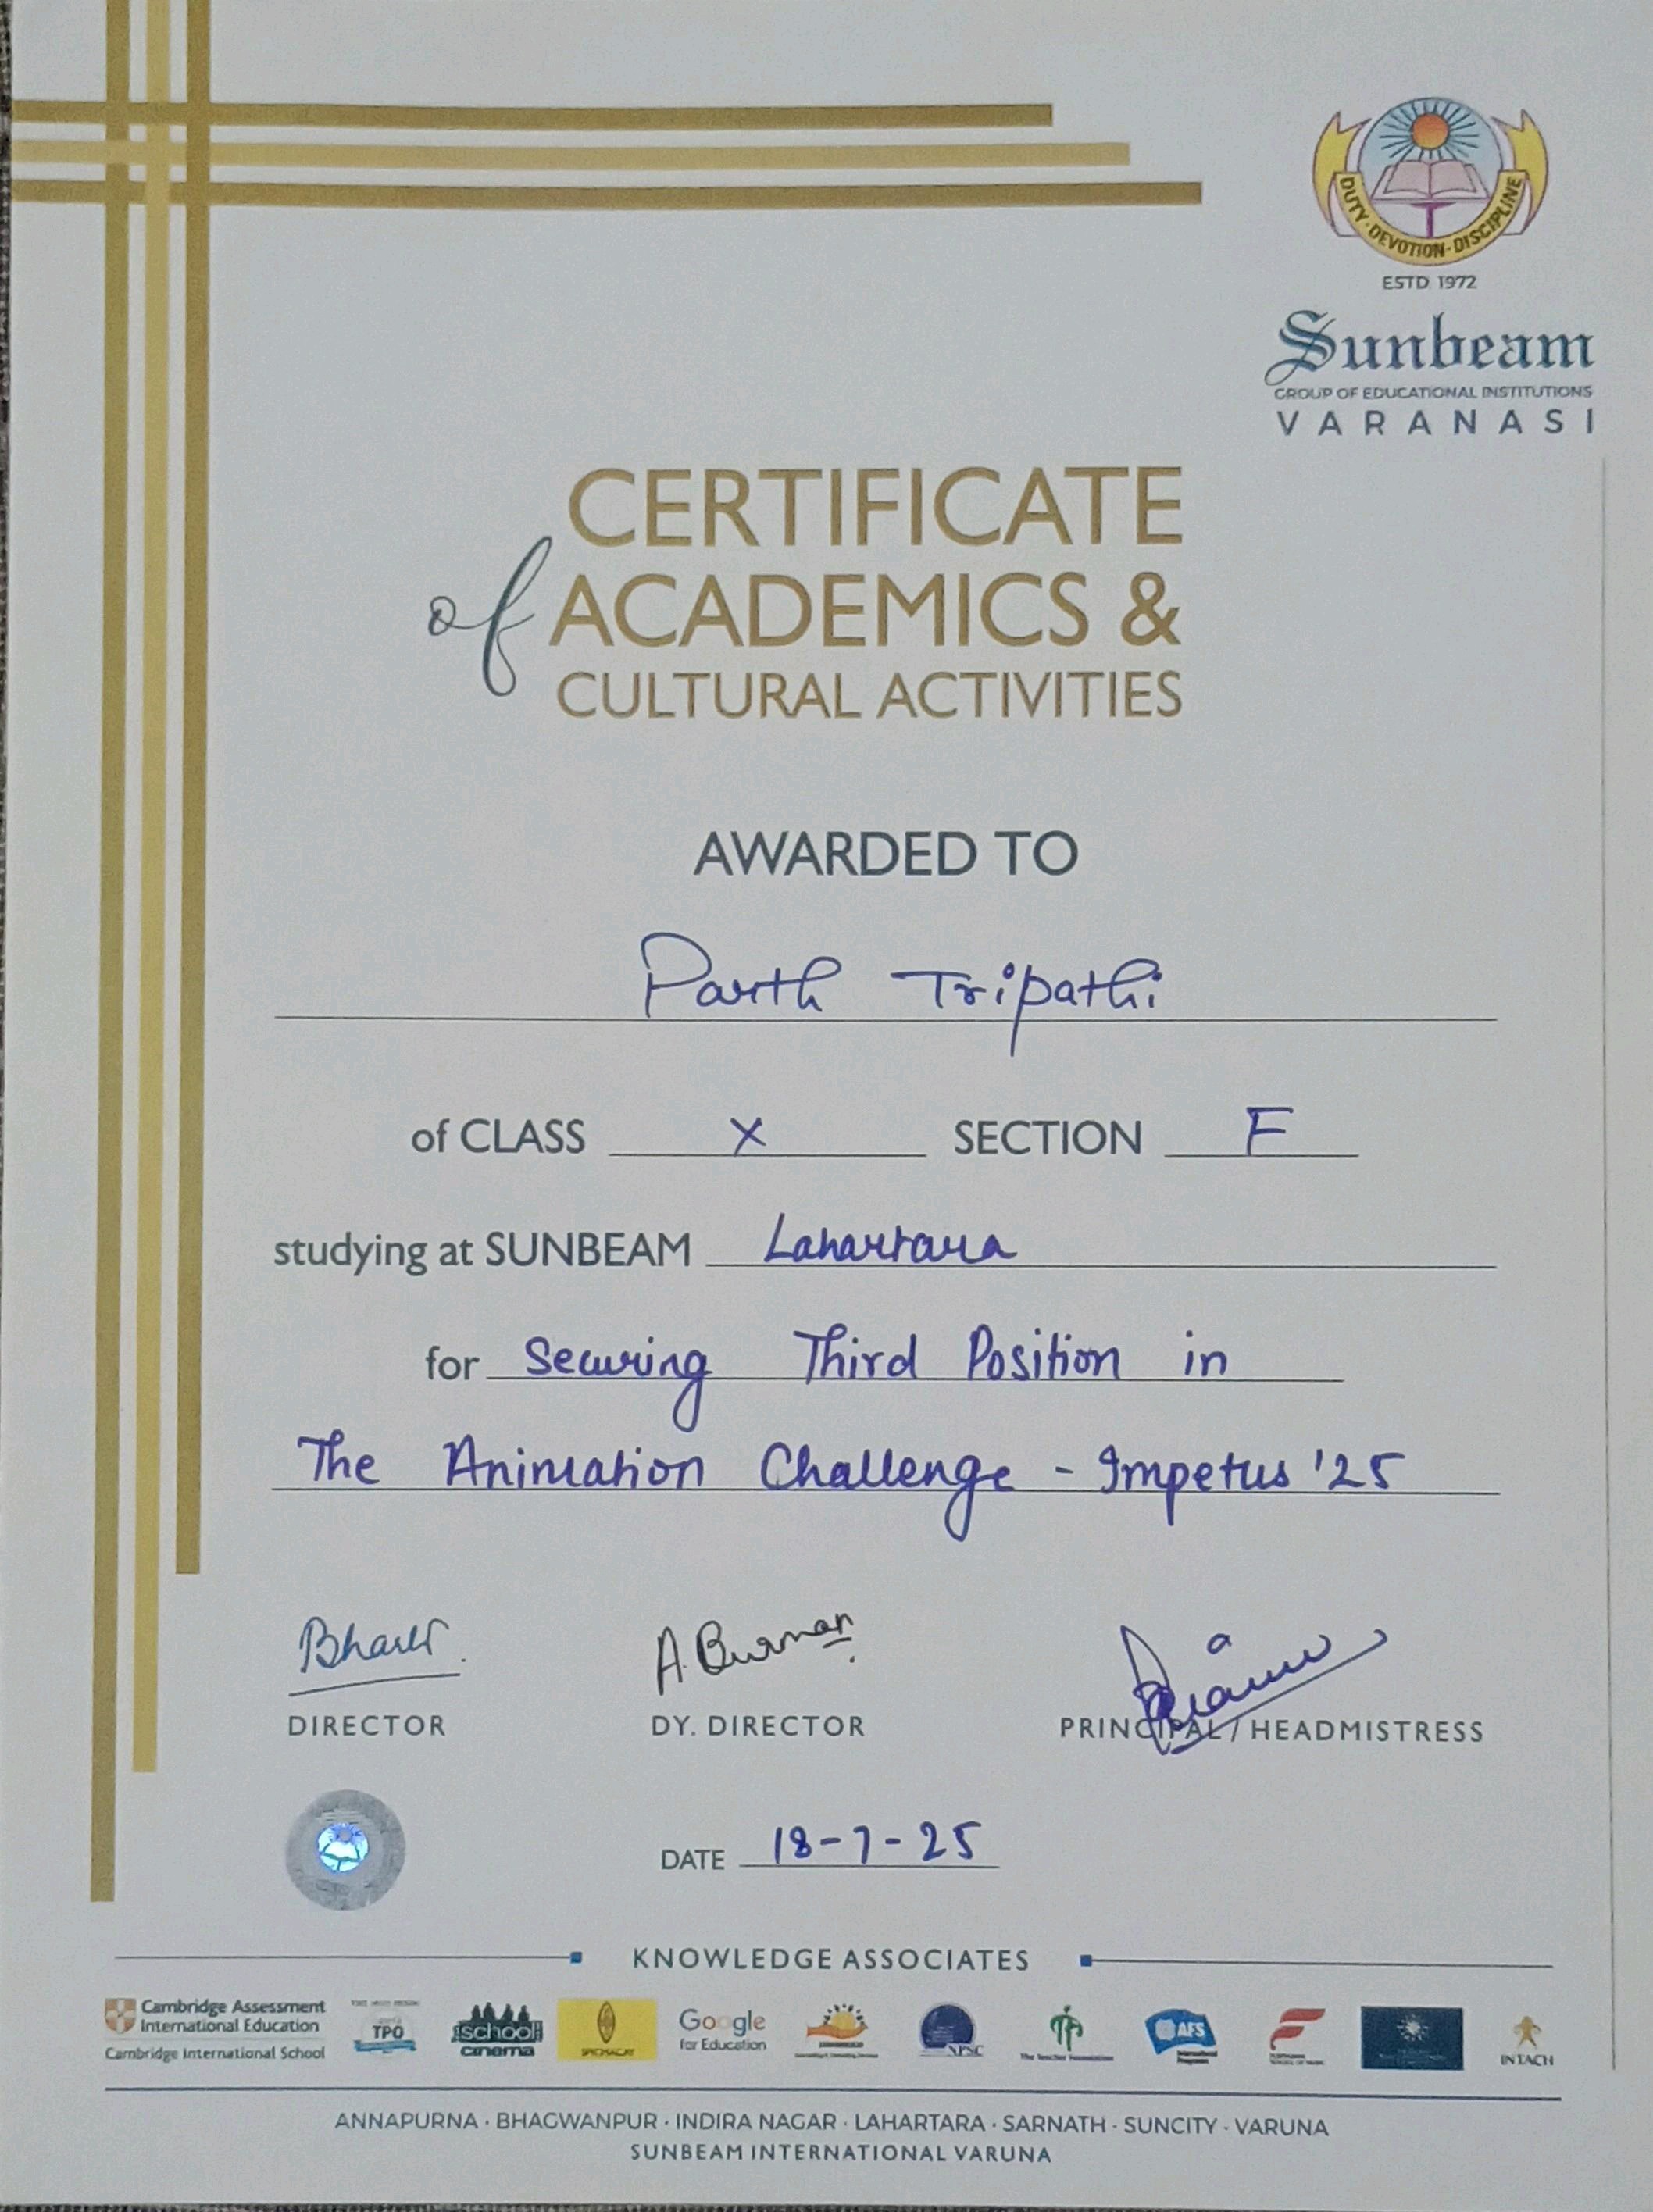 DUTY · DEVOTION · DISCIPLINE
ESTD 1972
Sunbeam
GROUP OF EDUCATIONAL INSTITUTIONS
VARANASI
CERTIFICATE
of ACADEMICS &
CULTURAL ACTIVITIES
AWARDED TO
Parth Tripathi
of CLASS X SECTION F
studying at SUNBEAM Lahartara
for Securing Third Position in
The Animation Challenge - Impetus '25
A. Burman
DIRECTOR DY. DIRECTOR PRINCIPAL / HEADMISTRESS
DATE 18-7-25
KNOWLEDGE ASSOCIATES
Cambridge Assessment
International Education
Cambridge International School
TPO
school
cinema
SPICMACAY
Google
for Education
NPSC
AFS
INTACH
ANNAPURNA · BHAGWANPUR · INDIRA NAGAR · LAHARTARA · SARNATH · SUNCITY · VARUNA
SUNBEAM INTERNATIONAL VARUNA